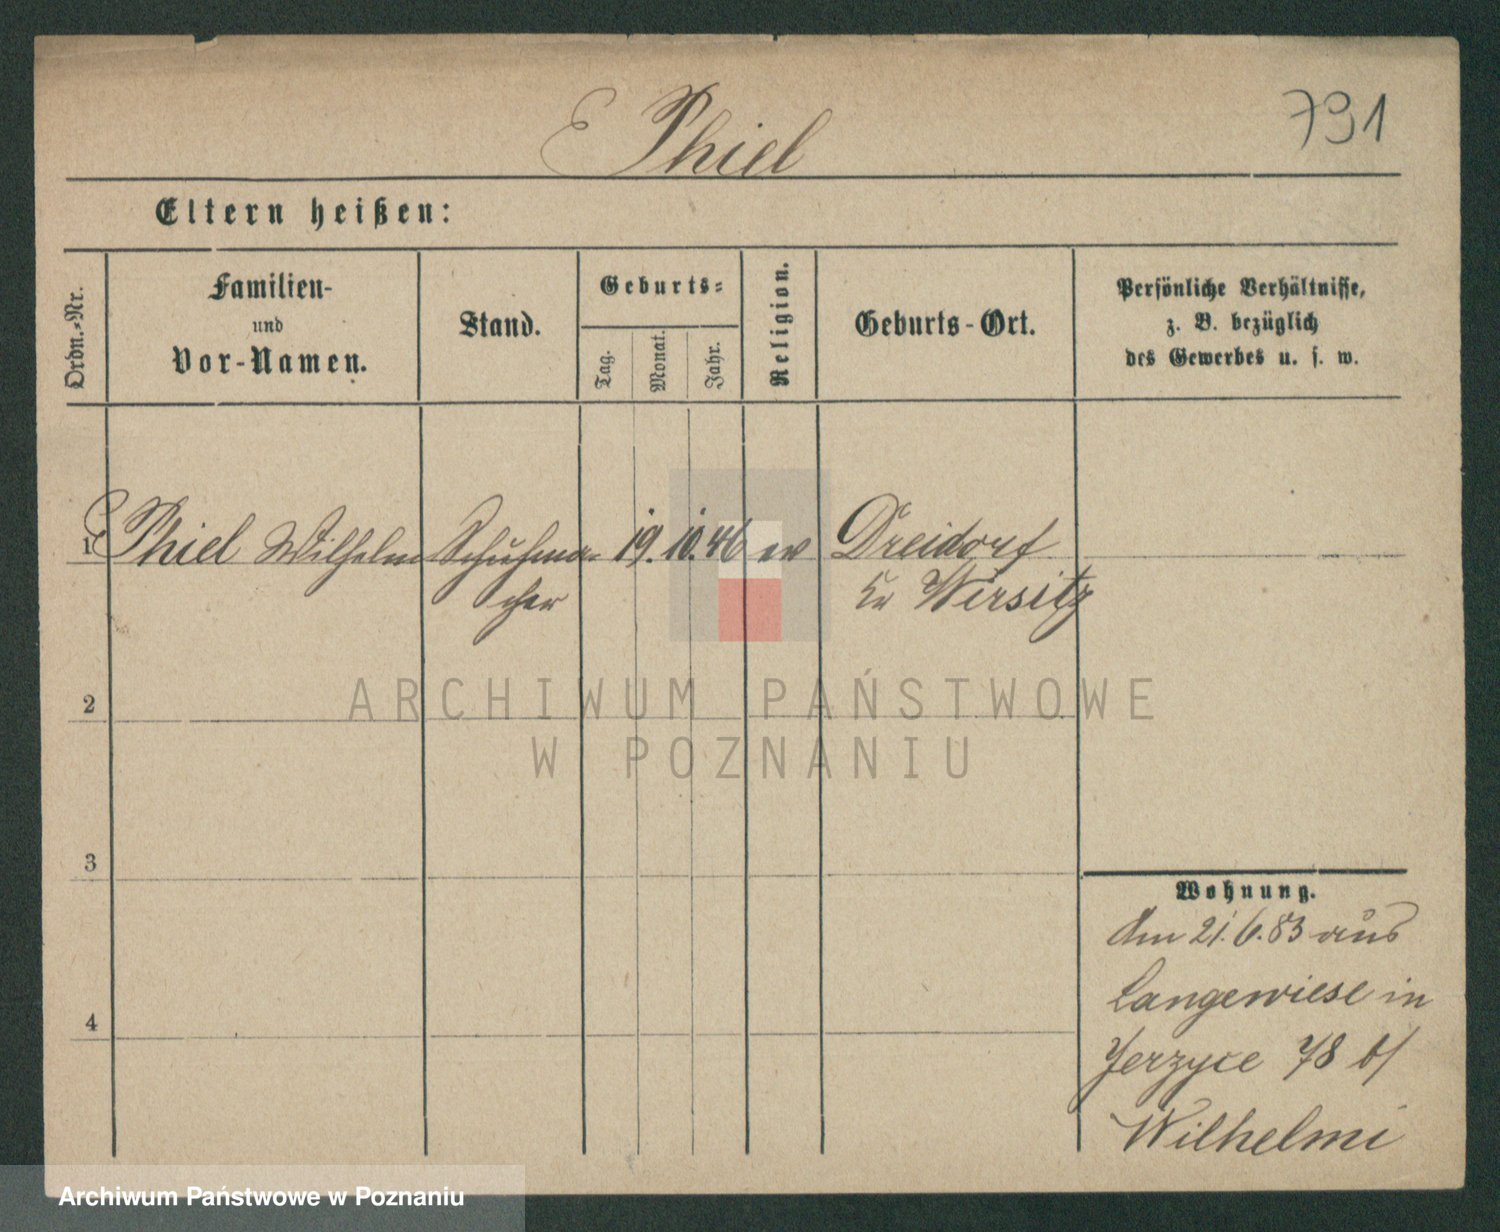 E Phiel
791
Eltern heißen:
Ordn.-Nr.
Familien-
und
Vor-Namen.
Stand.
Geburts-
Tag.
Monat.
Jahr.
Religion.
Geburts-Ort.
Persönliche Verhältnisse,
z. B. bezüglich
des Gewerbes u. s. w.
1 Phiel Wilhelm Schuhma- 19. 10. 46 ev Dreidorf
cher Kr Wirsitz
ARCHIWUM PAŃSTWOWE
W POZNANIU
2
3
4
Wohnung.
Am 21.6.83 aus
Langewiese in
Jerzyce 78 b/
Wilhelmi
Archiwum Państwowe w Poznaniu